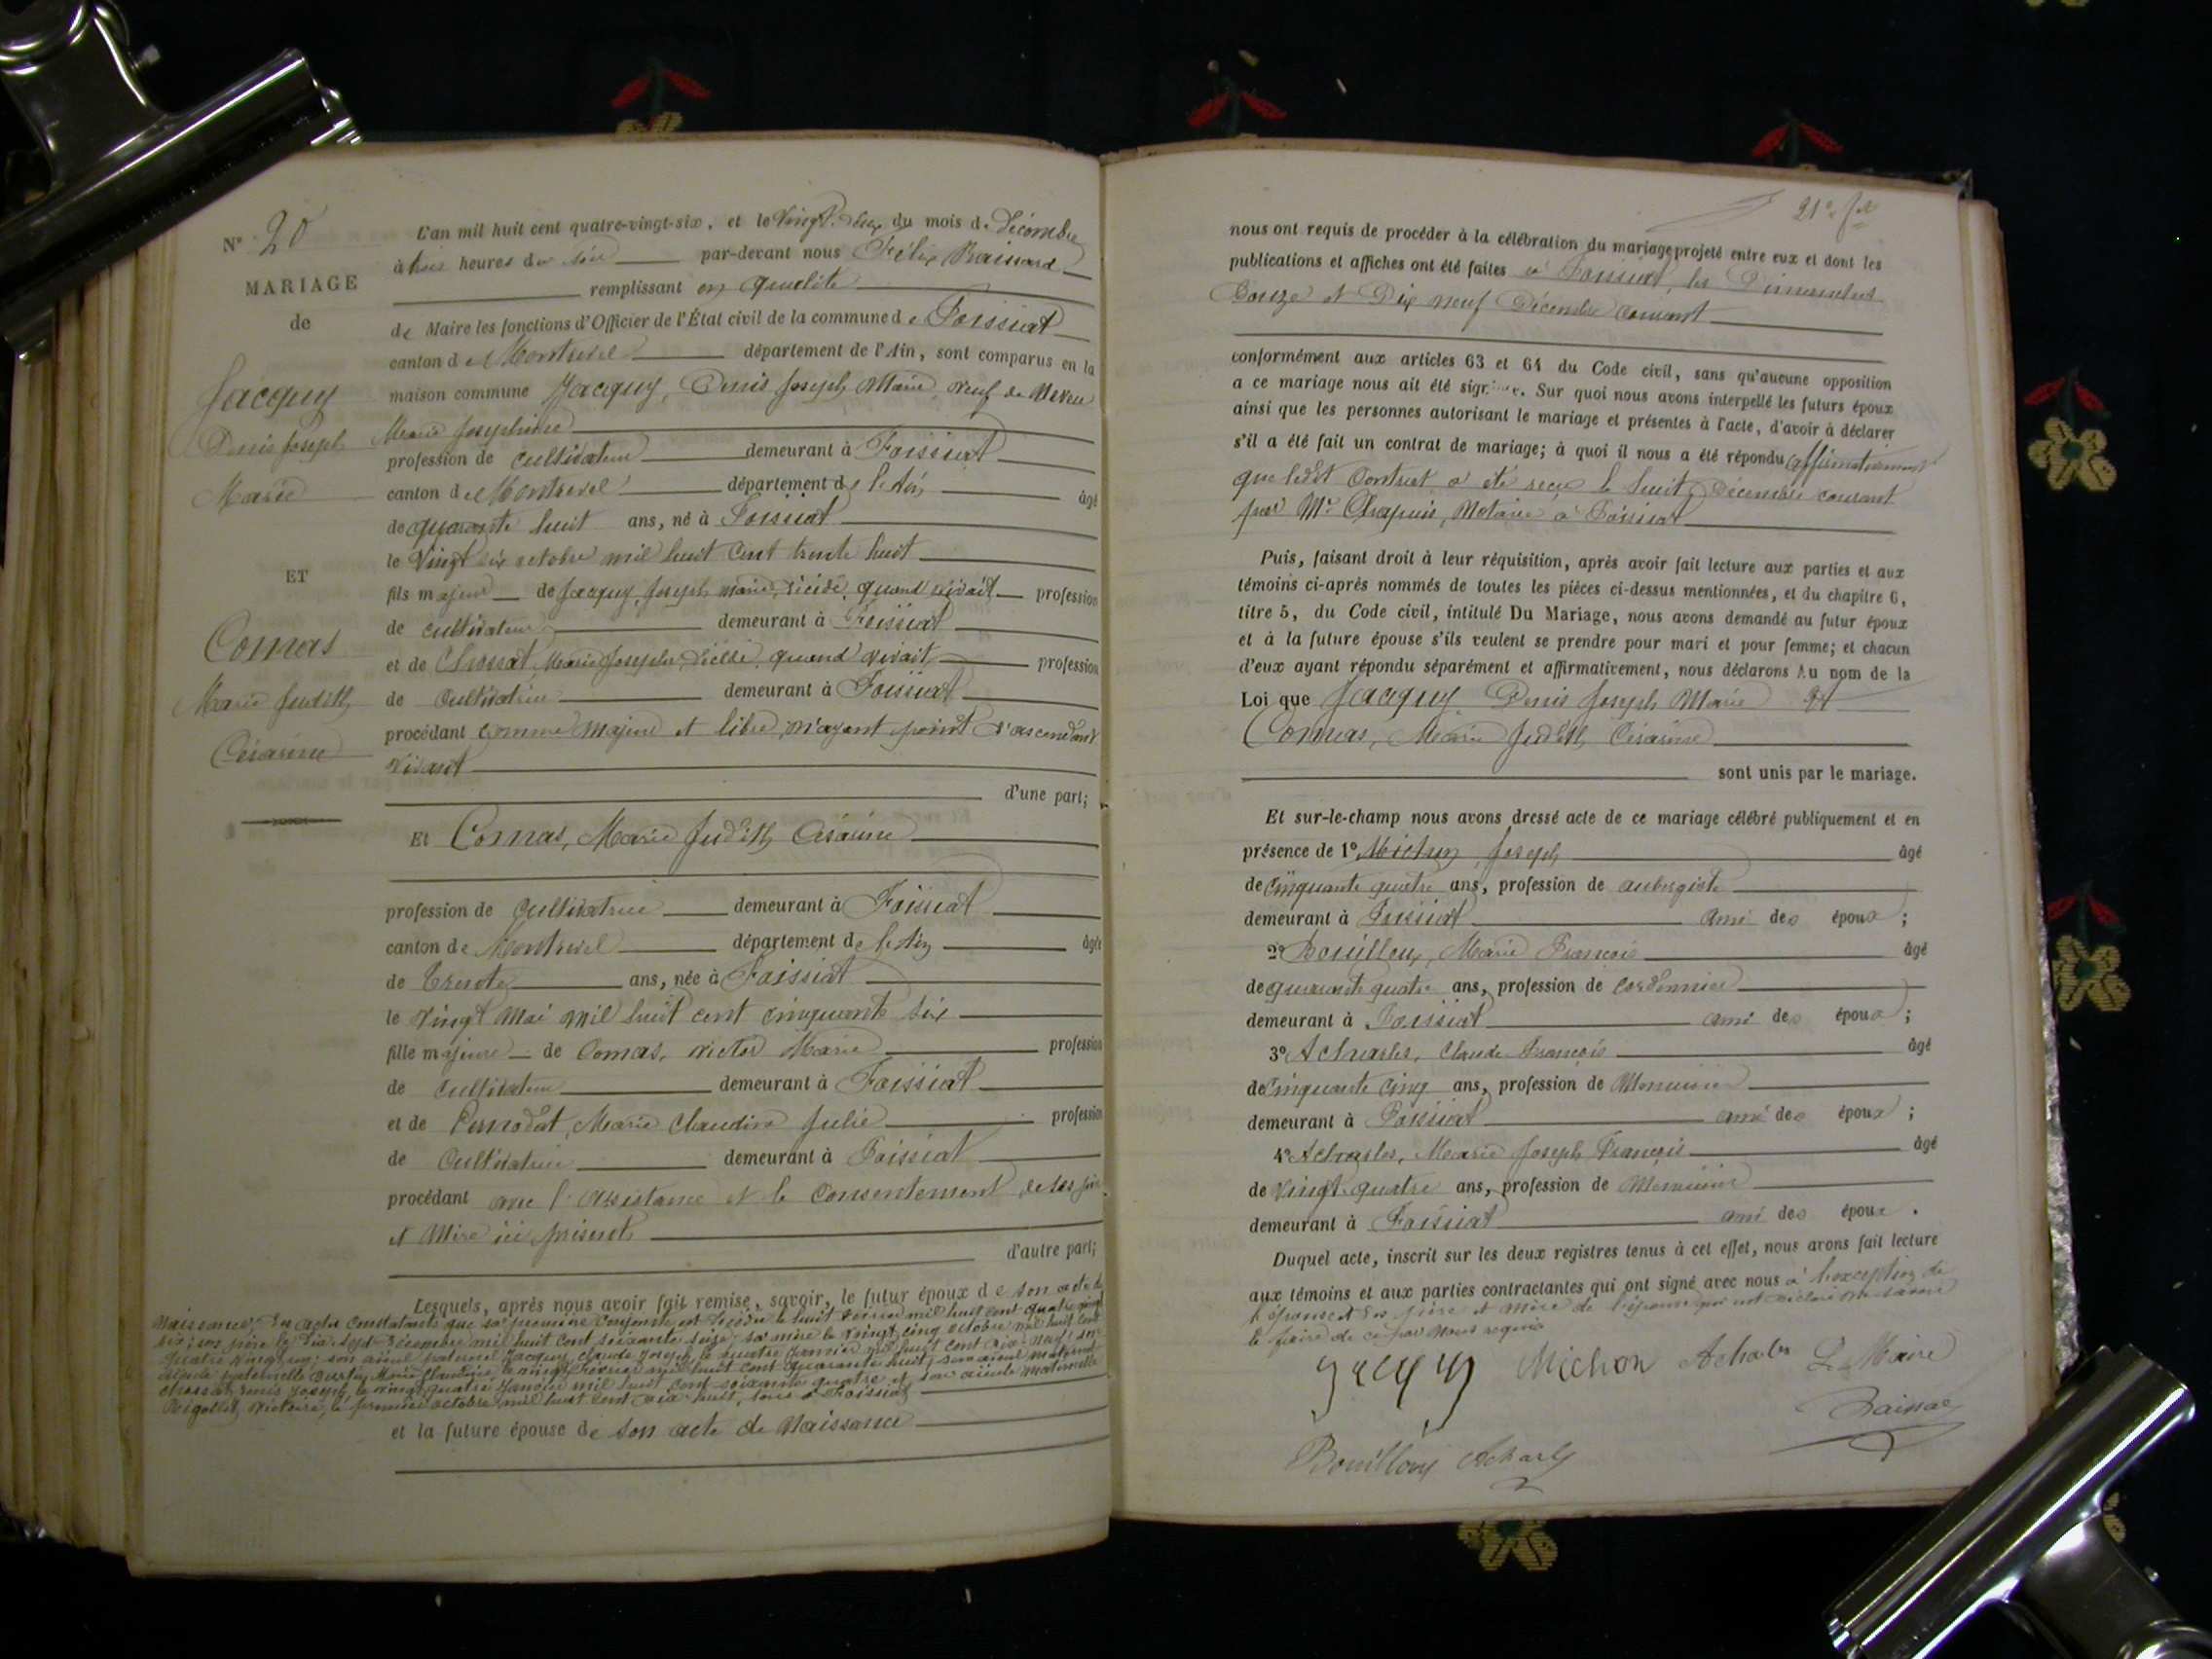 N° 20
MARIAGE
de
Jacquy
Denis Joseph
Marie
ET
Comas
Marie Judith
Césarine
L'an mil huit cent quatre-vingt-six, et le vingt-deux du mois de Décembre
à trois heures du soir par-devant nous Félix Raissard
remplissant en qualité
de Maire les fonctions d'Officier de l'État civil de la commune de Foissiat
canton de Montrevel département de l'Ain, sont comparus en la
maison commune Jacquy, Denis Joseph Marie, veuf de
Marie Joséphine
profession de cultivateur demeurant à Foissiat
canton de Montrevel département de l'Ain âgé
de quarante huit ans, né à Foissiat
le vingt six octobre mil huit cent trente huit
fils majeur de Jacquy, Joseph marie, décédé, quand vivait profession
de cultivateur demeurant à Foissiat
et de Chossat, Marie Josephe, décédé, quand vivait profession
de Cultivatrice demeurant à Foissiat
procédant comme majeur et libre, n'ayant point d'ascendant
vivant
d'une part;
Et Comas, Marie Judith Césarine
profession de Cultivatrice demeurant à Foissiat
canton de Montrevel département de l'Ain âgée
de trente ans, née à Foissiat
le vingt Mai mil huit cent cinquante six
fille majeure de Comas, victor Marie profession
de cultivateur demeurant à Foissiat
et de Pernodat, Marie Claudine Julie profession
de Cultivatrice demeurant à Foissiat
procédant avec l'assistance et le Consentement de ses père
et Mère ici présents
d'autre part;
Lesquels, après nous avoir fait remise, savoir, le futur époux de son acte de
Naissance, des actes constatants que sa première conjointe est décédée le huit février mil huit cent quatre vingt
six; son père le dix sept décembre mil huit cent soixante seize; sa mère le vingt cinq octobre mil huit cent
quatre vingt un; son aïeul paternel Jacquy, Claude Joseph, le quatre Janvier mil huit cent dix-neuf; son
aïeule paternelle Marie Claudine le vingt Février mil huit cent quarante huit, son aïeul maternel
Chossat, Denis Joseph, le vingt quatre Janvier mil huit cent soixante quatre et son aïeule maternelle
Rigollet, Victoire, le premier octobre mil huit cent dix huit, tous à Foissiat
et la future épouse de son acte de Naissance
21e f
nous ont requis de procéder à la célébration du mariage projeté entre eux et dont les
publications et affiches ont été faites à Foissiat, les Dimanches
Douze et Dix neuf Décembre courant
conformément aux articles 63 et 64 du Code civil, sans qu'aucune opposition
a ce mariage nous ait été signifiée. Sur quoi nous avons interpellé les futurs époux
ainsi que les personnes autorisant le mariage et présentes à l'acte, d'avoir à déclarer
s'il a été fait un contrat de mariage; à quoi il nous a été répondu affirmativement
que ledit Contrat a été reçu le huit Décembre courant
par Me Chapuis, Notaire à Foissiat
Puis, faisant droit à leur réquisition, après avoir fait lecture aux parties et aux
témoins ci-après nommés de toutes les pièces ci-dessus mentionnées, et du chapitre 6,
titre 5, du Code civil, intitulé Du Mariage, nous avons demandé au futur époux
et à la future épouse s'ils veulent se prendre pour mari et pour femme; et chacun
d'eux ayant répondu séparément et affirmativement, nous déclarons Au nom de la
Loi que Jacquy, Denis Joseph Marie et
Comas, Marie Judith Césarine
sont unis par le mariage.
Et sur-le-champ nous avons dressé acte de ce mariage célébré publiquement et en
présence de 1° Michon Joseph âgé
de Cinquante quatre ans, profession de aubergiste
demeurant à Foissiat ami des époux;
2° Bouilloux, Marie François âgé
de quarante quatre ans, profession de cordonnier
demeurant à Foissiat ami des époux;
3° Acharles, Claude François âgé
de Cinquante Cinq ans, profession de Menuisier
demeurant à Foissiat ami des époux;
4° Acharles, Marie Joseph François âgé
de vingt quatre ans, profession de Menuisier
demeurant à Foissiat ami des époux.
Duquel acte, inscrit sur les deux registres tenus à cet effet, nous avons fait lecture
aux témoins et aux parties contractantes qui ont signé avec nous à l'exception de
l'épouse et des père et mère de l'épouse qui ont déclaré ne savoir
le faire de ce par nous requis
Jacquy Michon Acharles Le Maire
Bouilloux Acharles